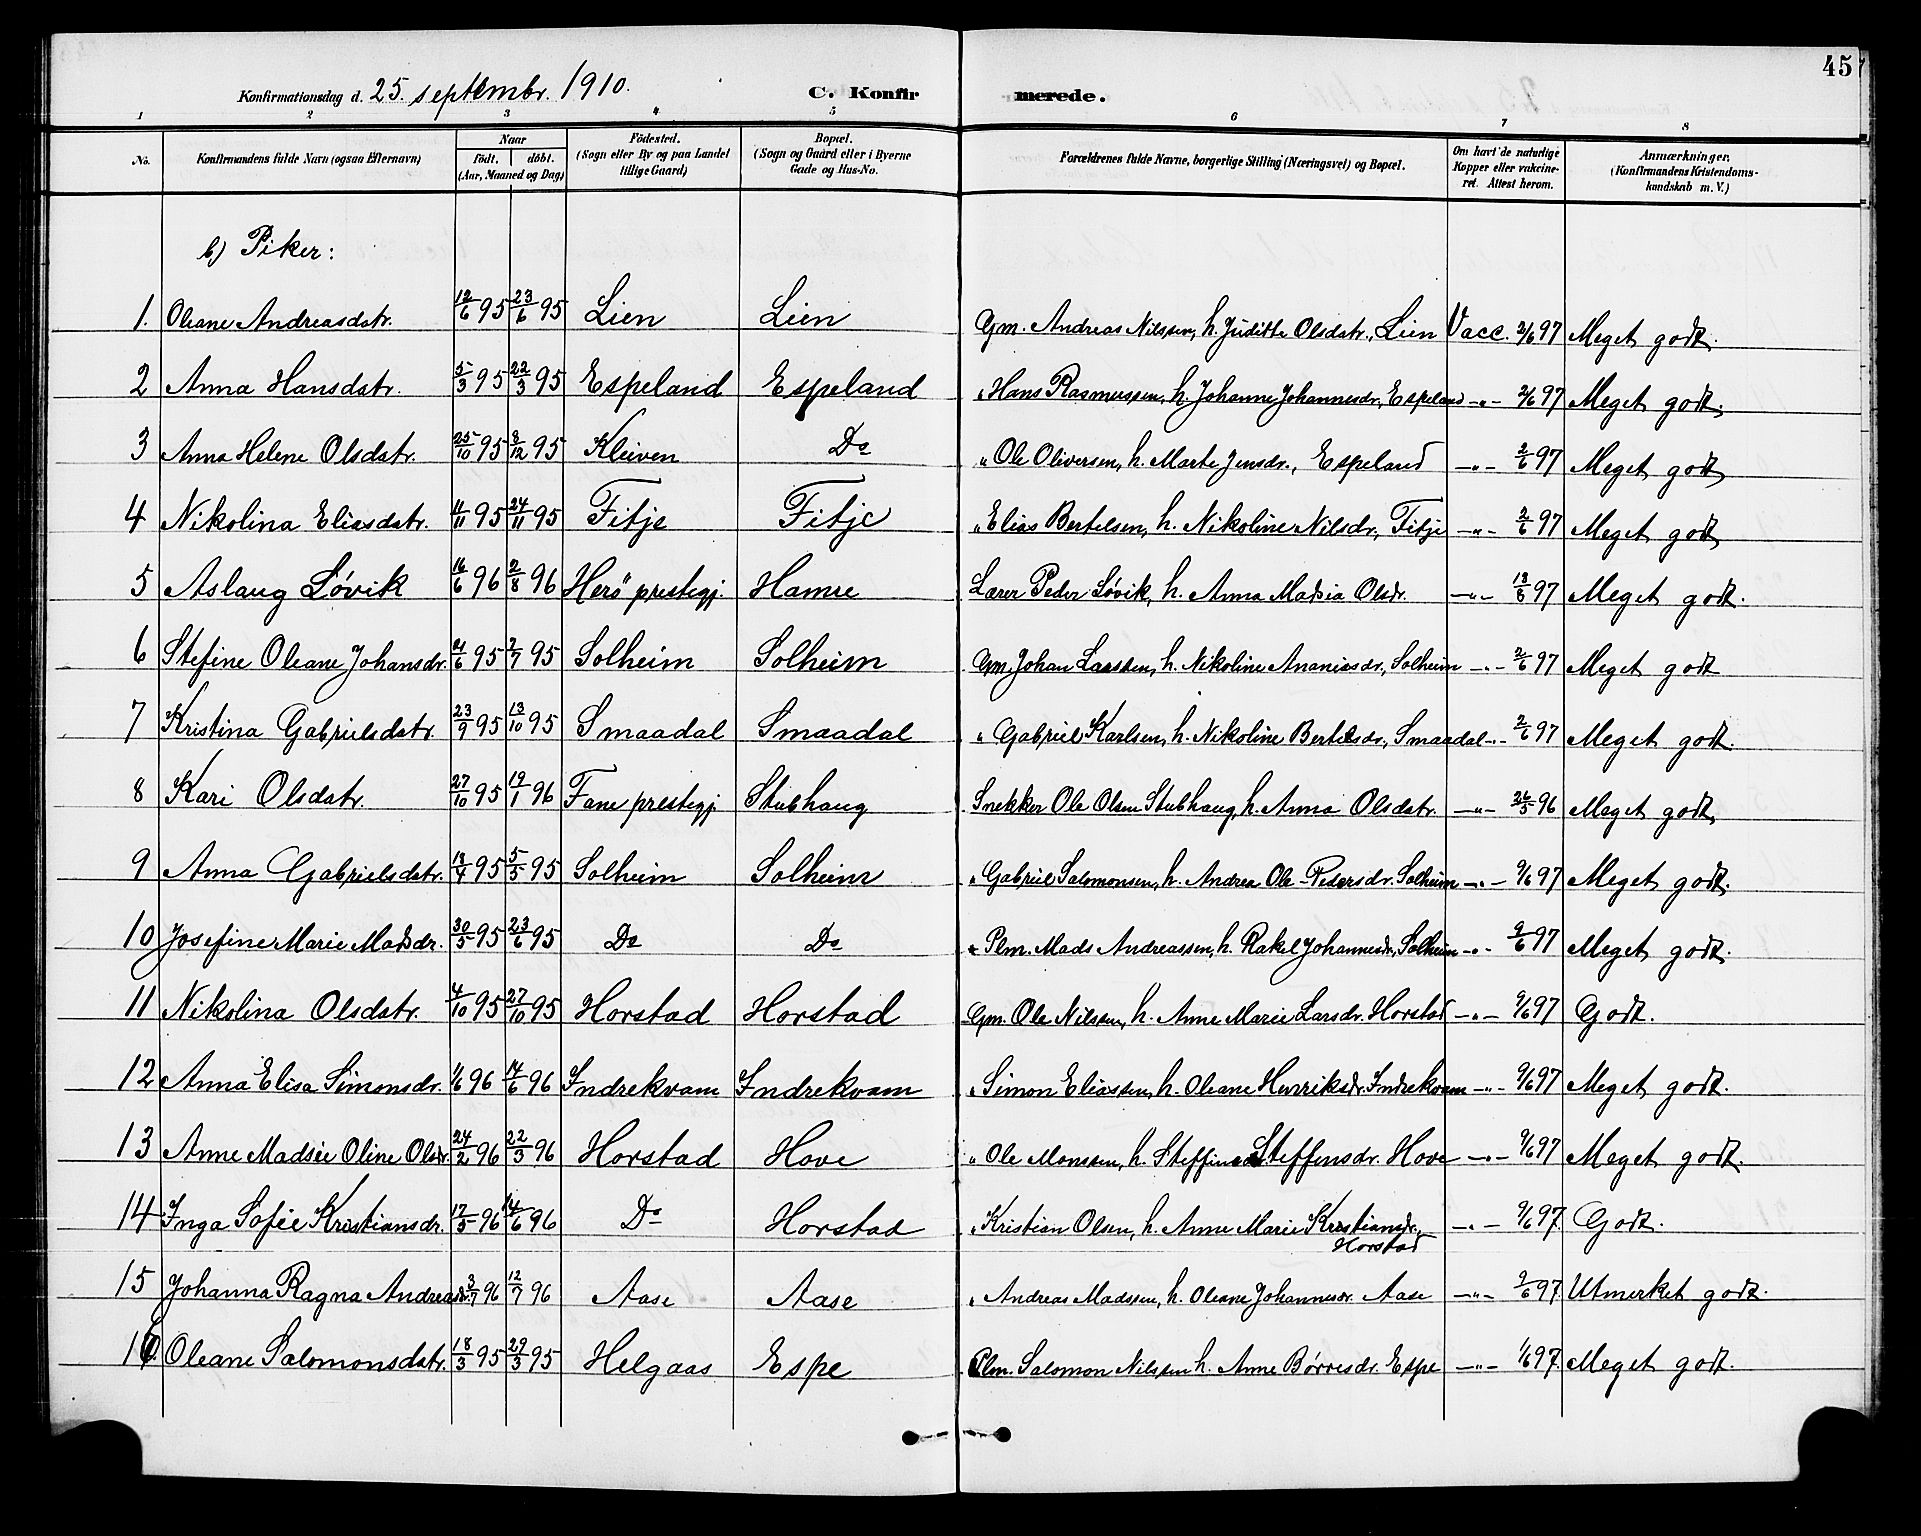 45
Konfirmationsdag d. 25. septembr. 1910. C. Konfirmerede.
1 2 3 4 5 6 7 8
No. Konfirmandens fulde Navn (ogsaa Efternavn) Naar födt. döbt. (Aar, Maaned og Dag) Födested. (Sogn eller By og paa Landet tillige Gaard) Bopæl. (Sogn og Gaard eller i Byerne Gade og Hus-No. Forældrenes fulde Navne, borgerlige Stilling (Næringsvei) og Bopæl. Om havt de naturlige Kopper eller vakcineret. Attest herom. Anmærkninger. (Konfirmandens Kristendomskundskab m. V.)
b) Piker:
1. Oleane Andreasdatr. 12/6 95 23/6 95 Lien Lien Gm. Andreas Nilssen, h. Juditte Olsdatr., Lien Vacc. 2/6 97 Meget godt.
2 Anna Hansdatr. 5/3 95 22/3 95 Espeland Espeland " Hans Rasmussen, h. Johanne Johannesdr., Espeland —"— 2/6 97 Meget godt.
3 Anna Helene Olsdatr. 25/10 95 8/12 95 Kleiven Do " Ole Oliversen, h. Marte Jensdr., Espeland —"— 2/6 97 Meget godt
4 Nikolina Eliasdatr. 11/11 95 24/11 95 Fitje Fitje " Elias Bertelsen, h. Nikoline Nilsdr., Fitje —"— 2/6 97 Meget godt
5 Aslaug Lövik 16/6 96 2/8 96 Herö prestegj. Hamre Lærer Peder Lövik, h. Anna Madsia Olsdr. —"— 97 Meget godt.
6 Stefine Oleane Johansdr. 95 2/7 95 Solheim Solheim Gm. Johan Larssen, h. Nikoline Ananiasdr., Solheim —"— 2/6 97 Meget godt
7 Kristina Gabrielsdatr. 23/9 95 13/10 95 Smaadal Smaadal " Gabriel Karlsen, h. Nikoline Bertelsdr., Smaadal —"— 2/6 97 Meget godt.
8 Kari Olsdatr. 27/10 95 19/1 96 Fane prestegj. Stubhaug Snekker Ole Olsen Stubhaug, h. Anna Olsdatr. —"— 26/5 96 Meget godt.
9 Anna Gabrielsdatr. 13/4 95 5/5 95 Solheim Solheim " Gabriel Salomonsen, h. Andrea Ole-Pedersdr. Solheim —"— 9/6 97 Meget godt.
10 Josefine Marie Madsdr. 30/5 95 23/6 95 Do Do " Plm. Mads Andreassen, h. Rakel Johannesdr., Solheim —"— 9/6 97 Meget godt.
11 Nikolina Olsdatr. 4/10 95 27/10 95 Horstad Horstad Gm. Ole Nilssen, h. Anne Marie Larsdr. Horstad —"— 9/6 97 Godt.
12 Anna Elisa Simonsdr. 1/6 96 14/6 96 Indrekvam Indrekvam " Simon Eliassen, h. Oleane Henriksdr. Indrekvam —"— 9/6 97 Meget godt.
13 Anne Madsie Oline Olsdr. 24/2 96 22/3 96 Horstad Hove " Ole Monssen, h. Steffine Steffensdr. Hove —"— 9/6 97 Meget godt.
14 Inga Sofie Kristiansdr. 17/5 96 14/6 96 Do Horstad " Kristian Olsen, h. Anne Marie Kristiansdr., —"— 9/6 97. Godt.
Horstad
15 Johanna Ragna Andreasdr. 3/7 96 12/7 96 Aase Aase " Andreas Madssen, h. Oleane Johannesdr. Aase —"— 9/6 97. Utmerket godt.
16. Oleane Salomonsdatr. 18/3 95 29/3 95 Helgaas Espe Plm. Salomon Nilssen h. Anne Börresdr. Espe —"— 1/6 97. Meget godt.